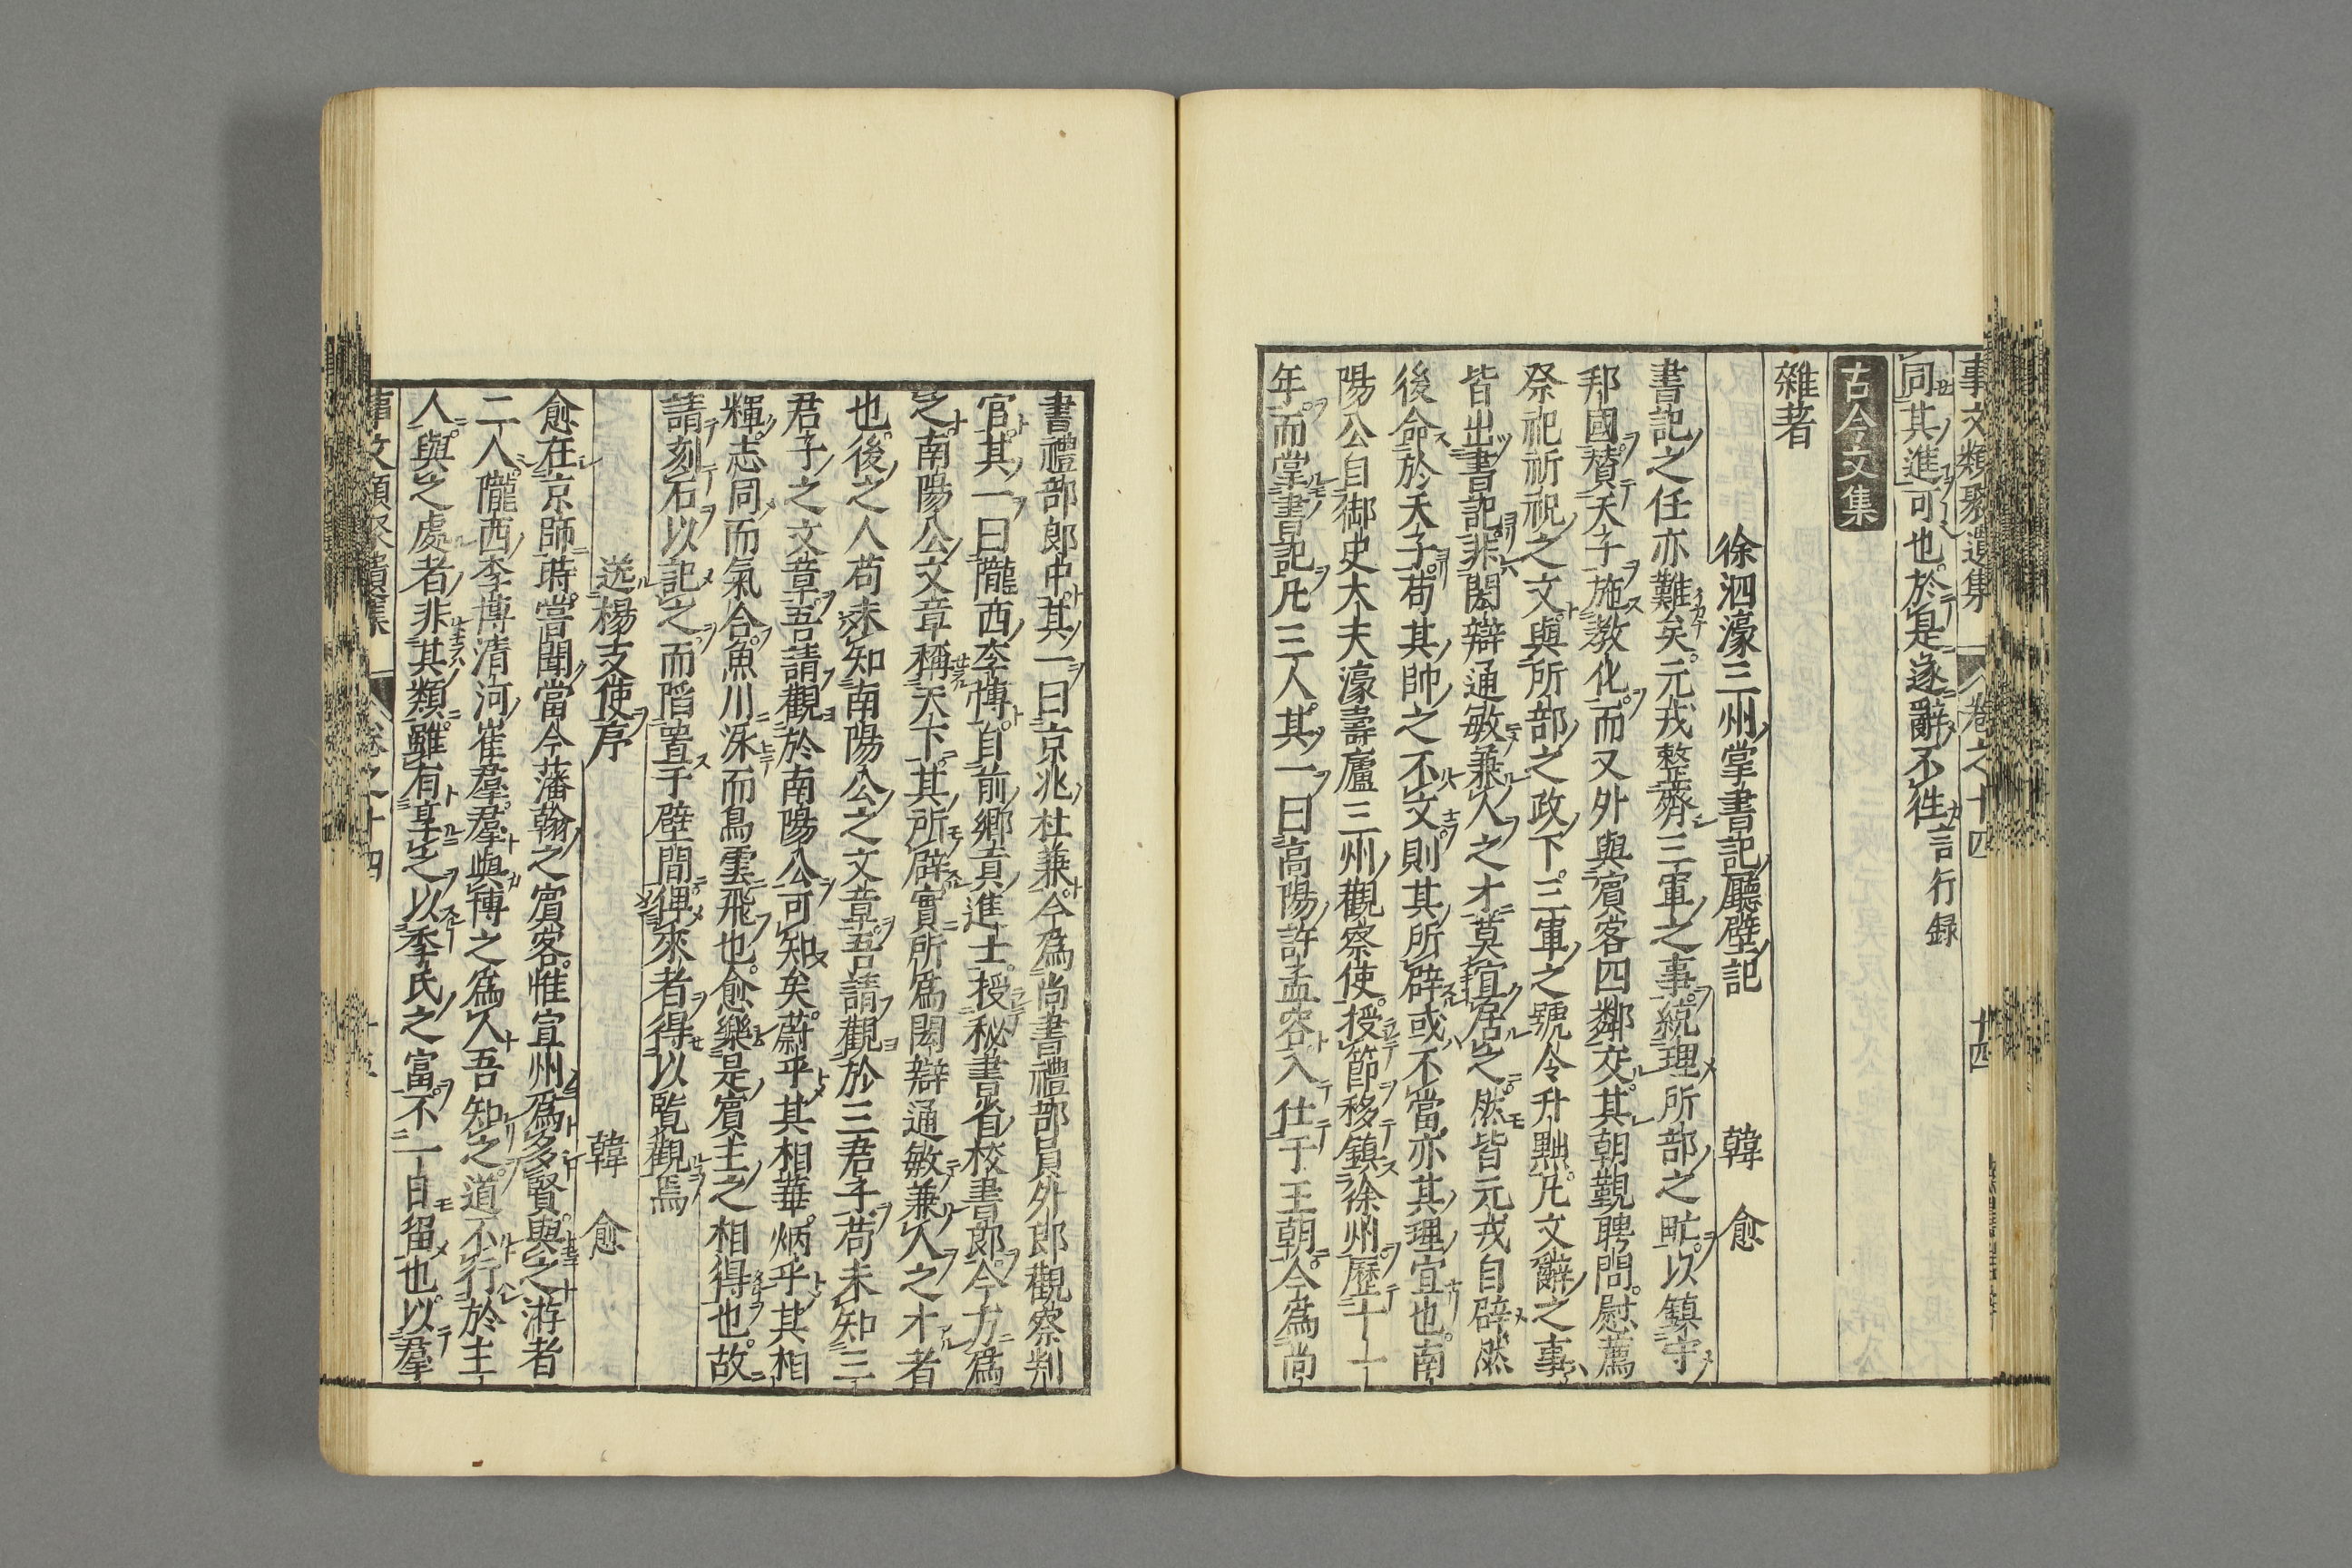 事文類聚遺集 卷之十四 十四
同其進可也於是遂辭不往 言行録
古今文集
雜著
徐泗濠三州掌書記廳壁記 韓愈
書記之任亦難矣元戎整齊三軍之事統理所部之甿以鎮守
邦國賛天子施教化而又外與賓客四鄰交其朝覲聘問慰薦
祭祀祈祝之文與所部之政下三軍之號令升黜凡文辭之事
皆出書記非閎辯通敏兼人之才莫宜居之然皆元戎自辟然
後命於天子苟其帥之不文則其所辟或不當亦其理宜也南
陽公自御史大夫濠壽廬三州觀察使授節移鎮徐州歷十一
年而掌書記凡三人其一曰高陽許孟容入仕于王朝今爲尚
書禮部郎中其一曰京兆杜兼今爲尚書禮部員外郎觀察判
官其一曰隴西李博自前鄉貢進士授秘書省校書郎今方爲
之南陽公文章稱天下其所辟實所爲閎辯通敏兼人之才者
也後之人苟未知南陽公之文章吾請觀於三君子苟未知三
君子之文章吾請觀於南陽公可知矣蔚乎其相華炳乎其相
輝志同而氣合魚川泳而鳥雲飛也愈樂是賓主之相得也故
請刻石以記之而陷置于壁間俾來者得以覽觀焉
送楊支使序 韓愈
愈在京師時嘗聞當今藩翰之賓客惟宣州爲多賢與之游者
二人隴西李博清河崔羣羣與博之爲人吾知之道不行於主
人與之處者非其類雖有享之以季氏之富不一日留也以羣
事文類聚遺集 卷之十四